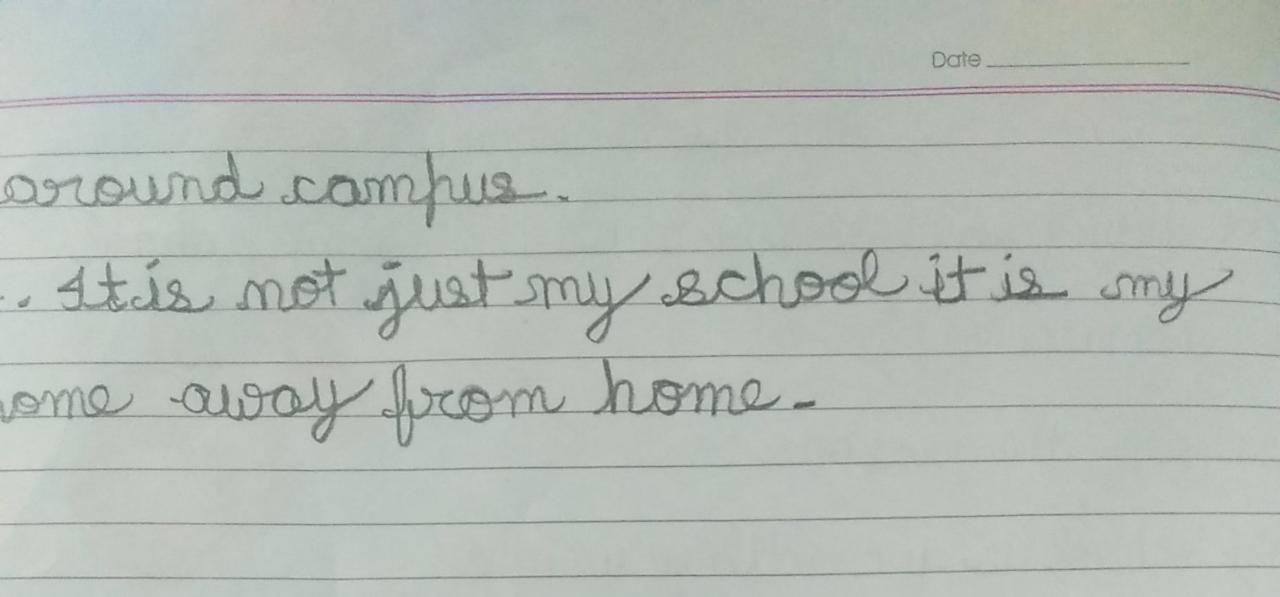 Date
around campus.
.. It is not just my school it is my
ome away from home.